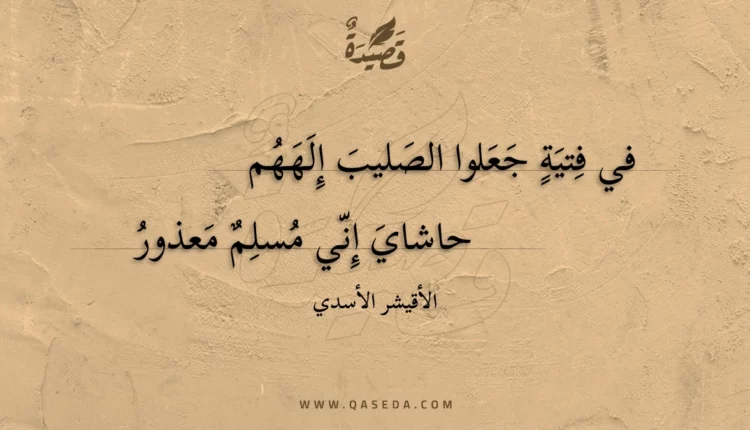 قَصِيْدَةٌ
في فِتيَةٍ جَعَلوا الصَليبَ إِلَهَهُم
حاشايَ إِنّي مُسلِمٌ مَعذورُ
الأقيشر الأسدي
WWW.QASEDA.COM